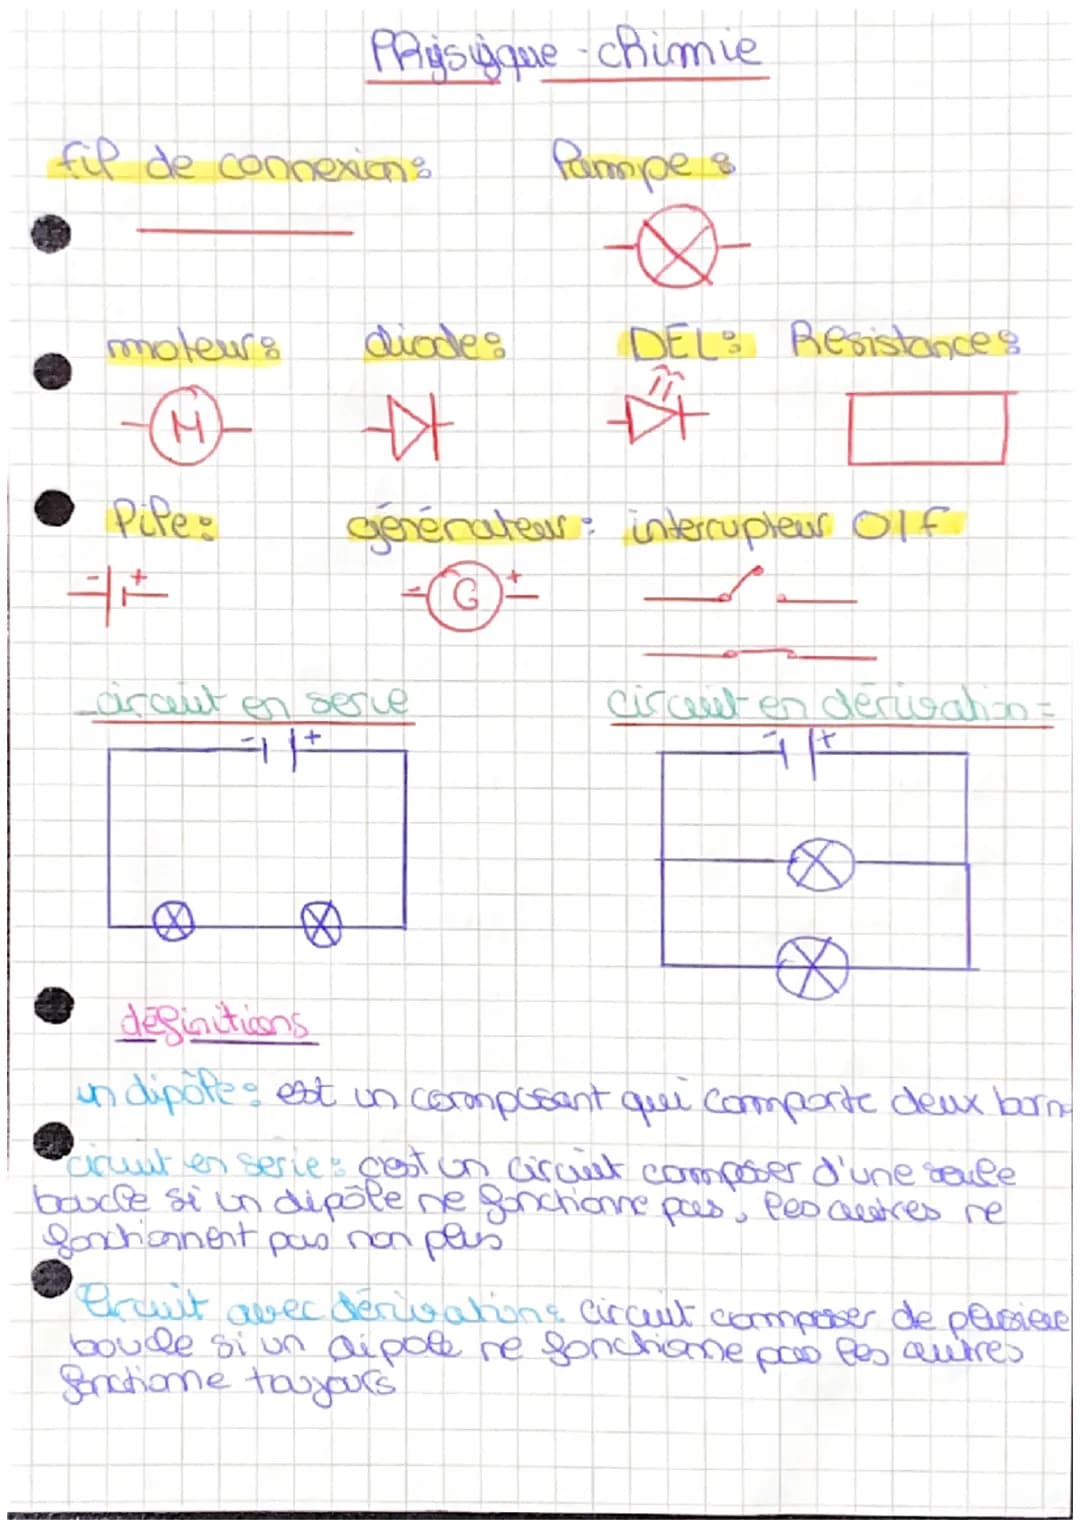 Physique - chimie
fil de connexion: lampe:
moteur: diode: DEL: Resistance:
M
Pile: générateur: interrupteur O/F
- + - G +
circuit en serie circuit en dérivation =
- + - +
définitions
un dipôle: est un composant qui comporte deux born
circuit en serie: c'est un circuit composer d'une seule
boucle si un dipôle ne fonctionne pas, les autres ne
fonctionnent pas non plus
Circuit avec dérivation: circuit composer de plusieu
boucle si un dipole ne fonctionne pas les autres
fonctionne toujours